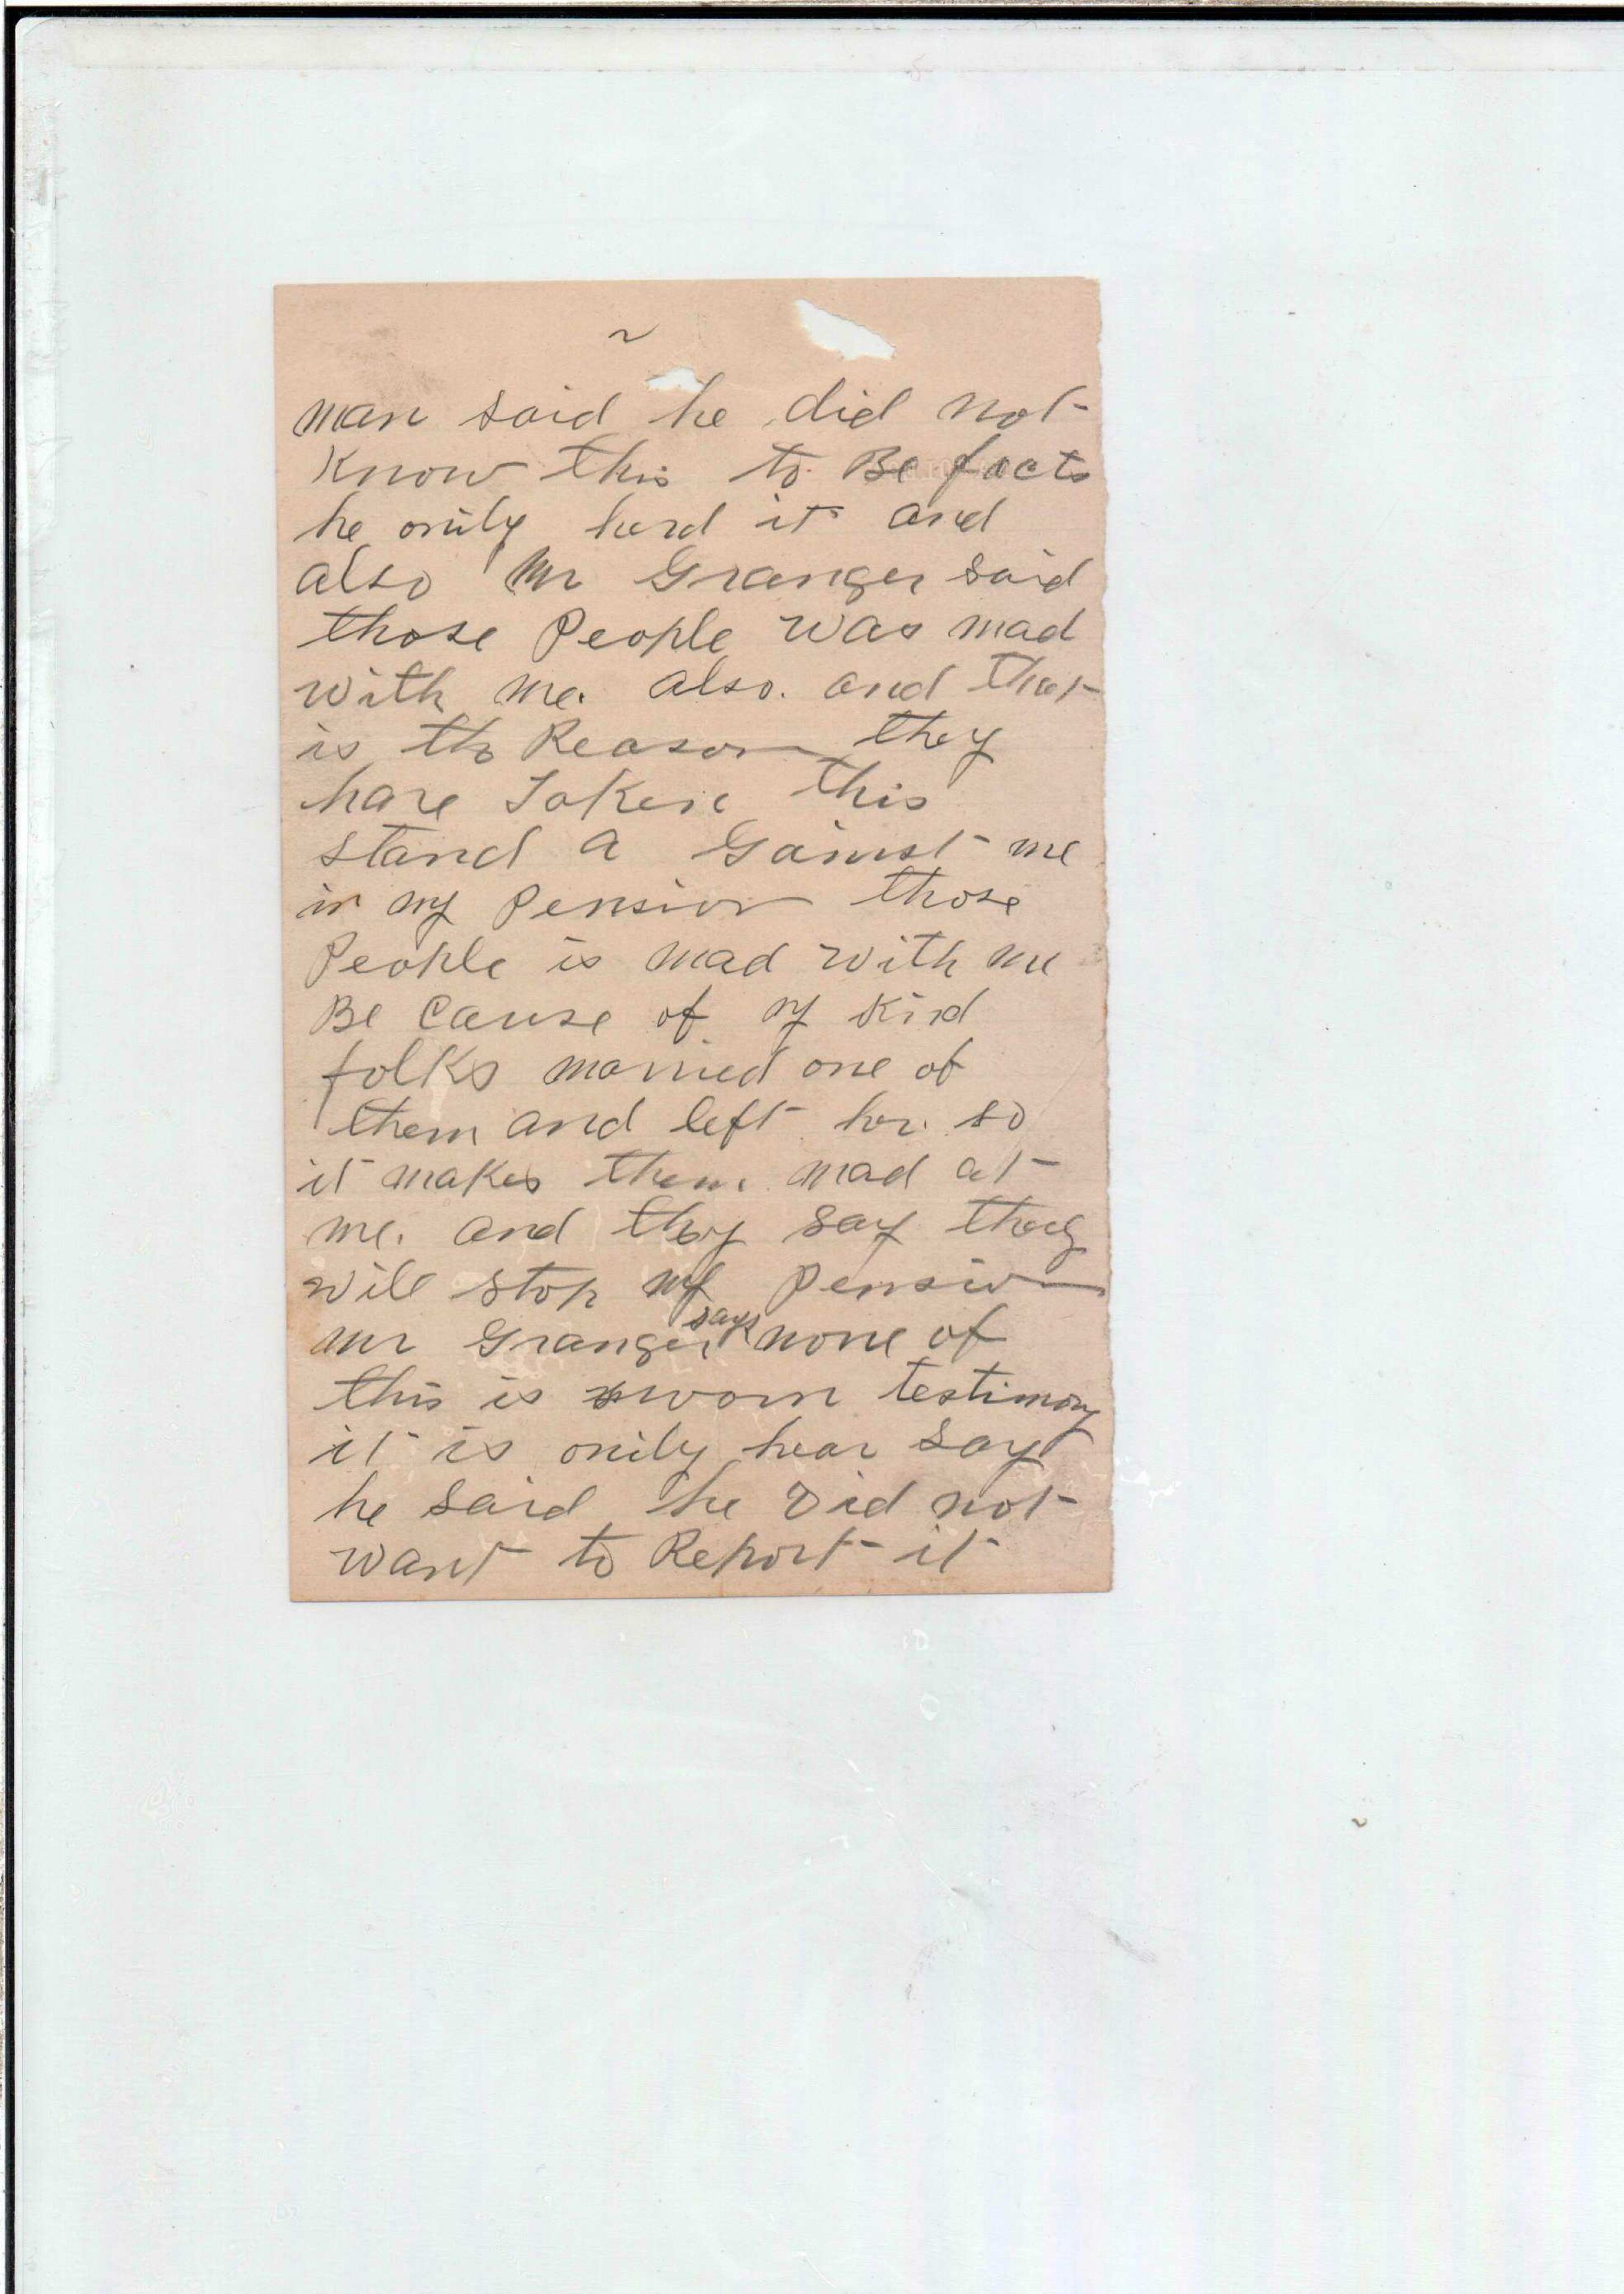 man said he did not
Know this to Be facts
he onily herd it and
also Mr Granger said
those People was mad
with me. also. and that
is the Reason they
have Taken this
stand a Gainst me
in my Pension those
People is mad with me
Be Cause of my Kind
folks married one of
them and left her. so
it makes them mad at
me. and they say they
will stop my Pension
Mr Granger says none of
this is sworn testimony
it is onily hear say
he said he Did not
want to Report it